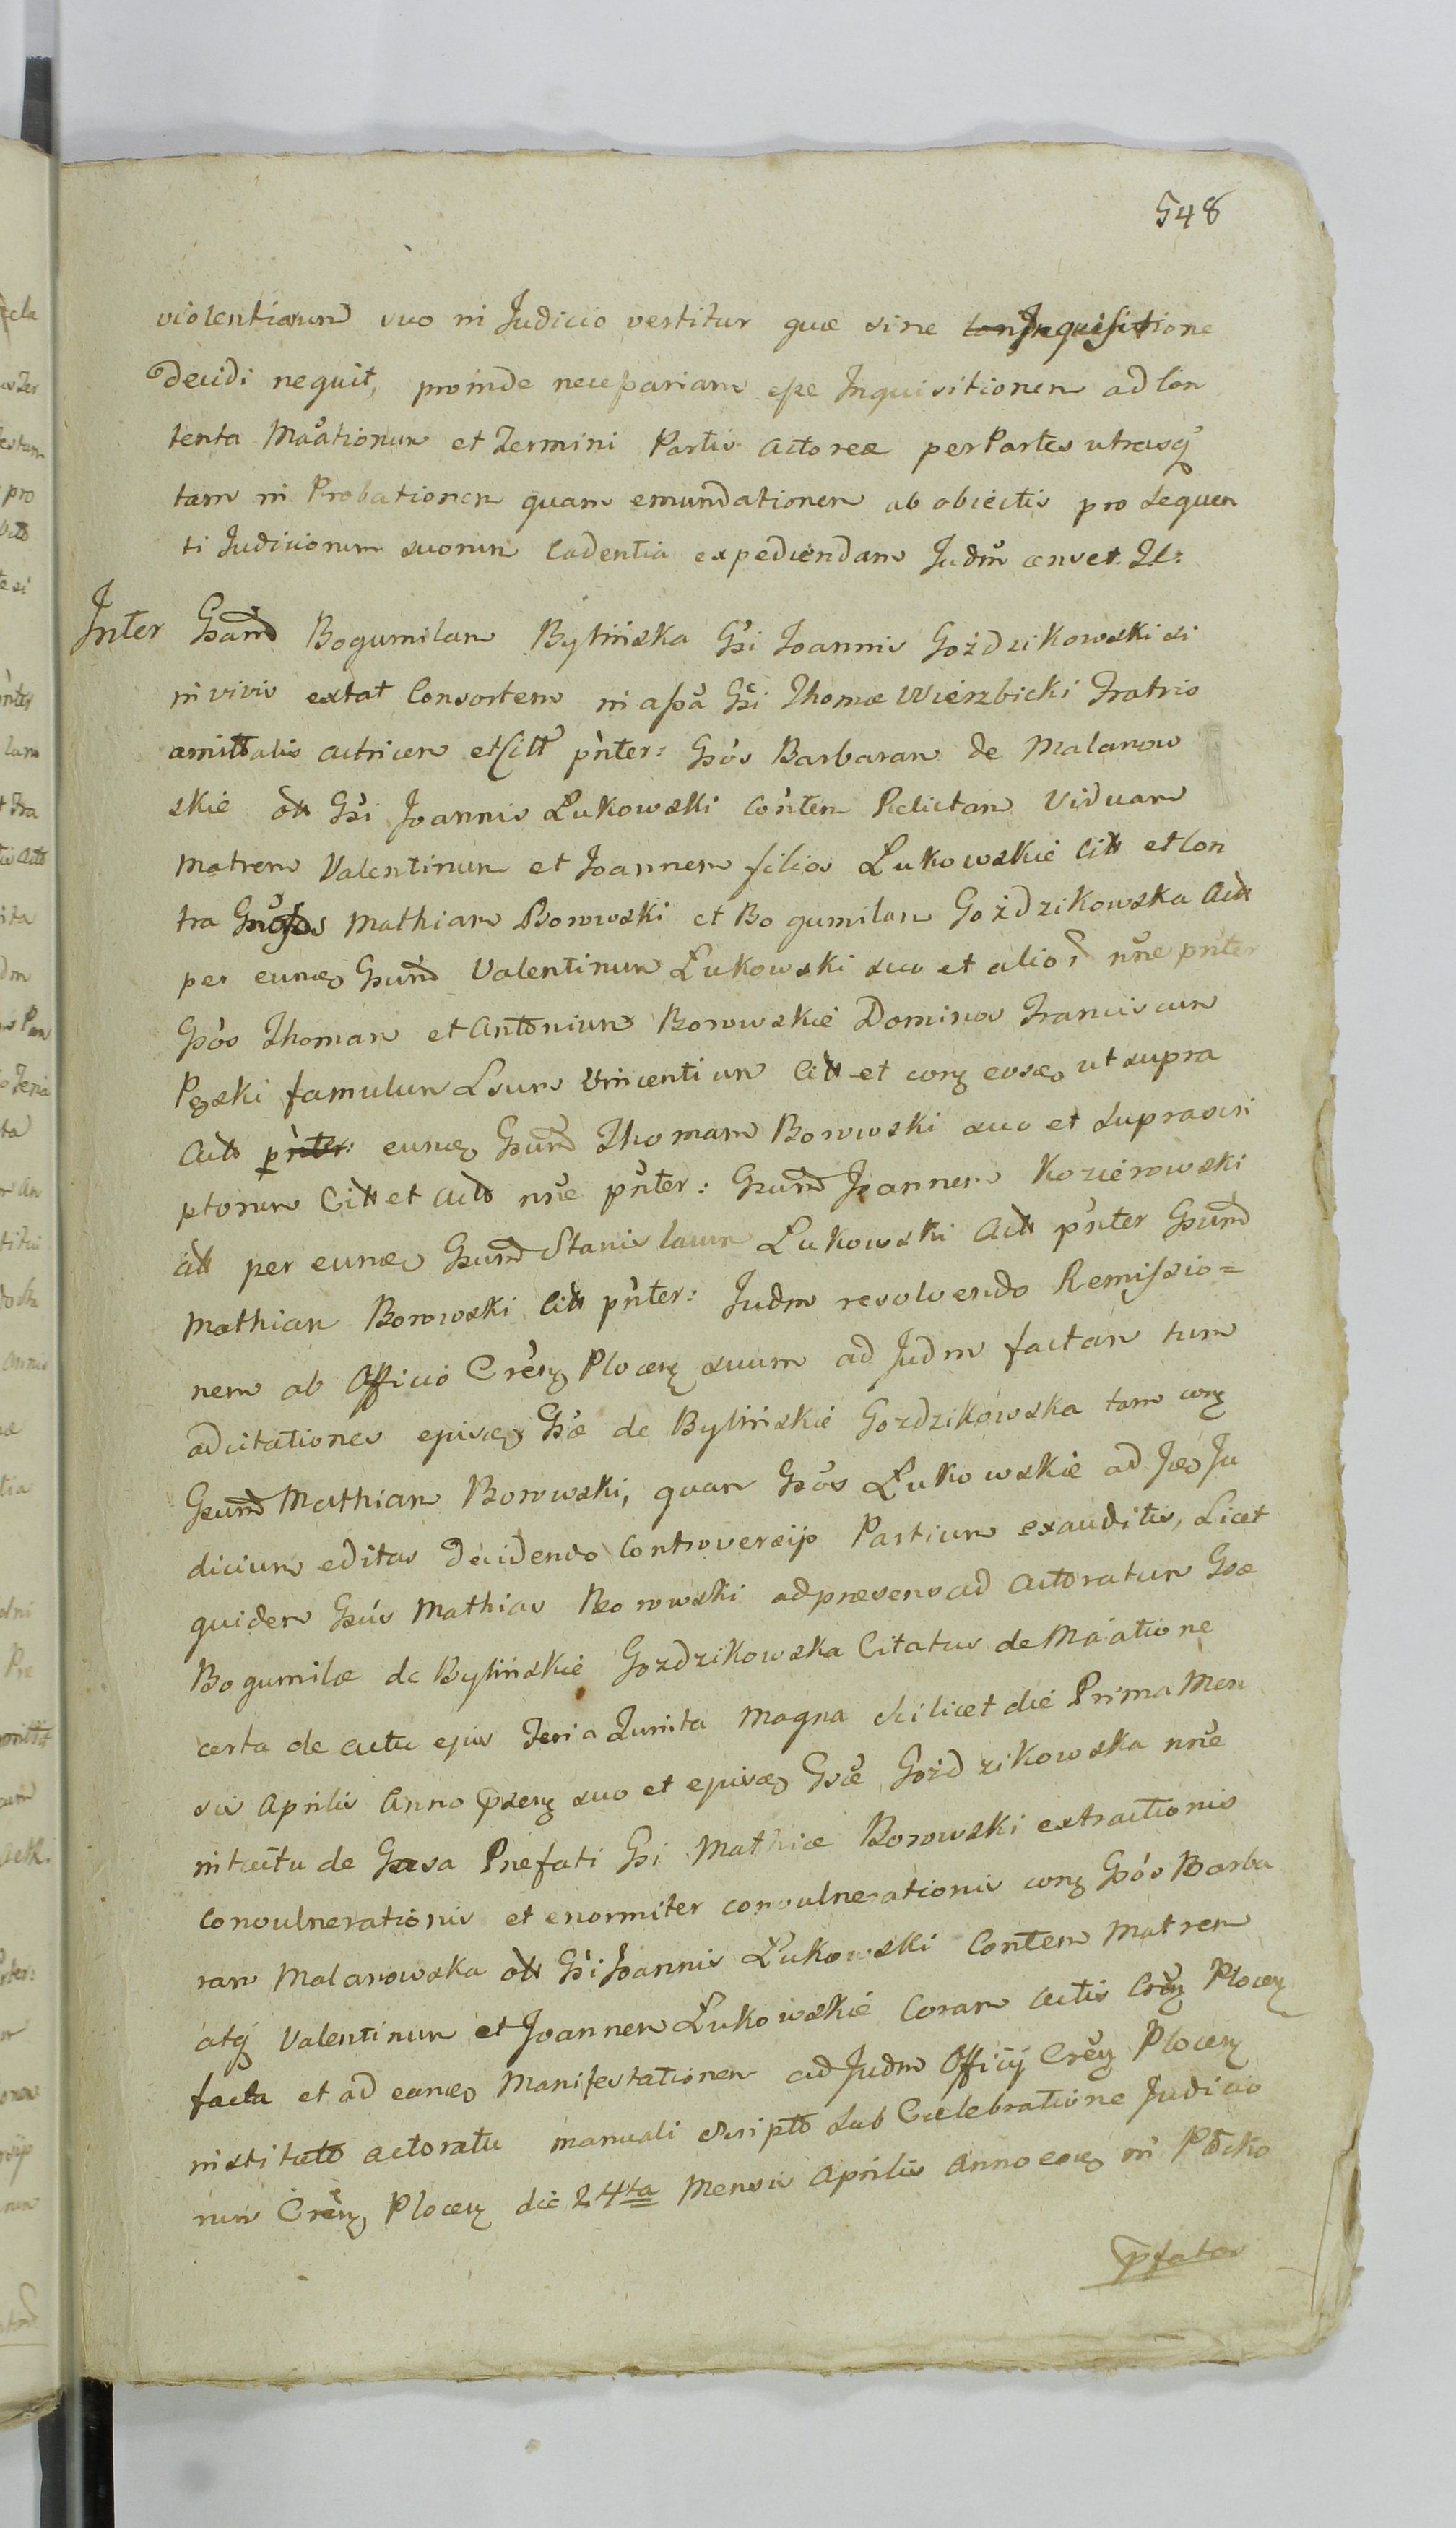 548
violentiarum suo in Judicio vertitur quæ sine Inquisitione
decidi nequit, proinde necessariam esse Inquisitionem ad Con
tenta Maãtionum et Termini Partis Actoreæ per Partes utrasq
tam in Probationem quam emundationem ab obiectis pro Sequen
ti Judiciorum suorum Cadentia expediendam Judm censet. Il:
Inter Gsam Bogumilam Bylińska Gsi Joannis Goździkowski si
in vivis extat Consortem in assa Gsi Thomæ Wierzbicki Fratris
amittalis actricem et Citt pnter: Gsos Barbaram de Malanow
skie ott Gsi Joannis Łukowski Contem Relictam Viduam
Matrem Valentinum et Joannem filios Łukowskie Citt et Con
tra Gsos Mathiam Borowski et Bogumilam Goździkowska Actt
per eunq Gsum Valentinum Łukowski suo et alior nne pnter
Gsos Thomam et Antonium Borowskie Dominos Franciscum
Pęski famulum Lsum Vincentium Citt et conq eosq ut supra
Actt pnter: eunq Gsum Thomam Borowski suo et suprascri
ptorum Citt et Actt nne pnter: Gsum Joannem Kozierowski
att per eunq Gsum Stanislaum Łukowski Actt pnter Gsum
Mathiam Borowski Citt pnter: Judm resolvendo Remissio=
nem ab Officio Crensq Plocensq suum ad Judm factam tum
adcitationes ejusq Gsæ de Bylińskie Gozdzikowska tam conq
Gsum Mathiam Borowski, quam Gsos Łukowskie ad Idq Ju
dicium editas decidendo Controversijs Partium exauditis, Licet
quidem Gsus Mathias Borowski ad præsens ad Actoratum Gsæ
Bogumilæ de Bylińskie Gozdzikowska Citatus de Maãtione
certa de actu ejus Feria Quinta Magna scilicet die Prima Men
sis Aprilis Anno psenq suo et ejusq Gsæ Goździkowska nne
intuitu de Gsasa Prefati Gsi Mathiæ Borowski extractionis
convulnerationis et enormiter convulnerationis conq Gsos Barba
ram Malanowska ott Gsi Joannis Łukowski Contem Matrem
atq Valentinum et Joannem Łukowskie Coram Actis Crensq Plocensq
facta et ad eanq Manifestationem ad Judm Officij Crensq Plocensq
instituto actoratu manuali scripto sub Celebratione Judicio
rum Crensq Plocensq die 24ta Mensis Aprilis Anno eoq in Płocko
pfatos